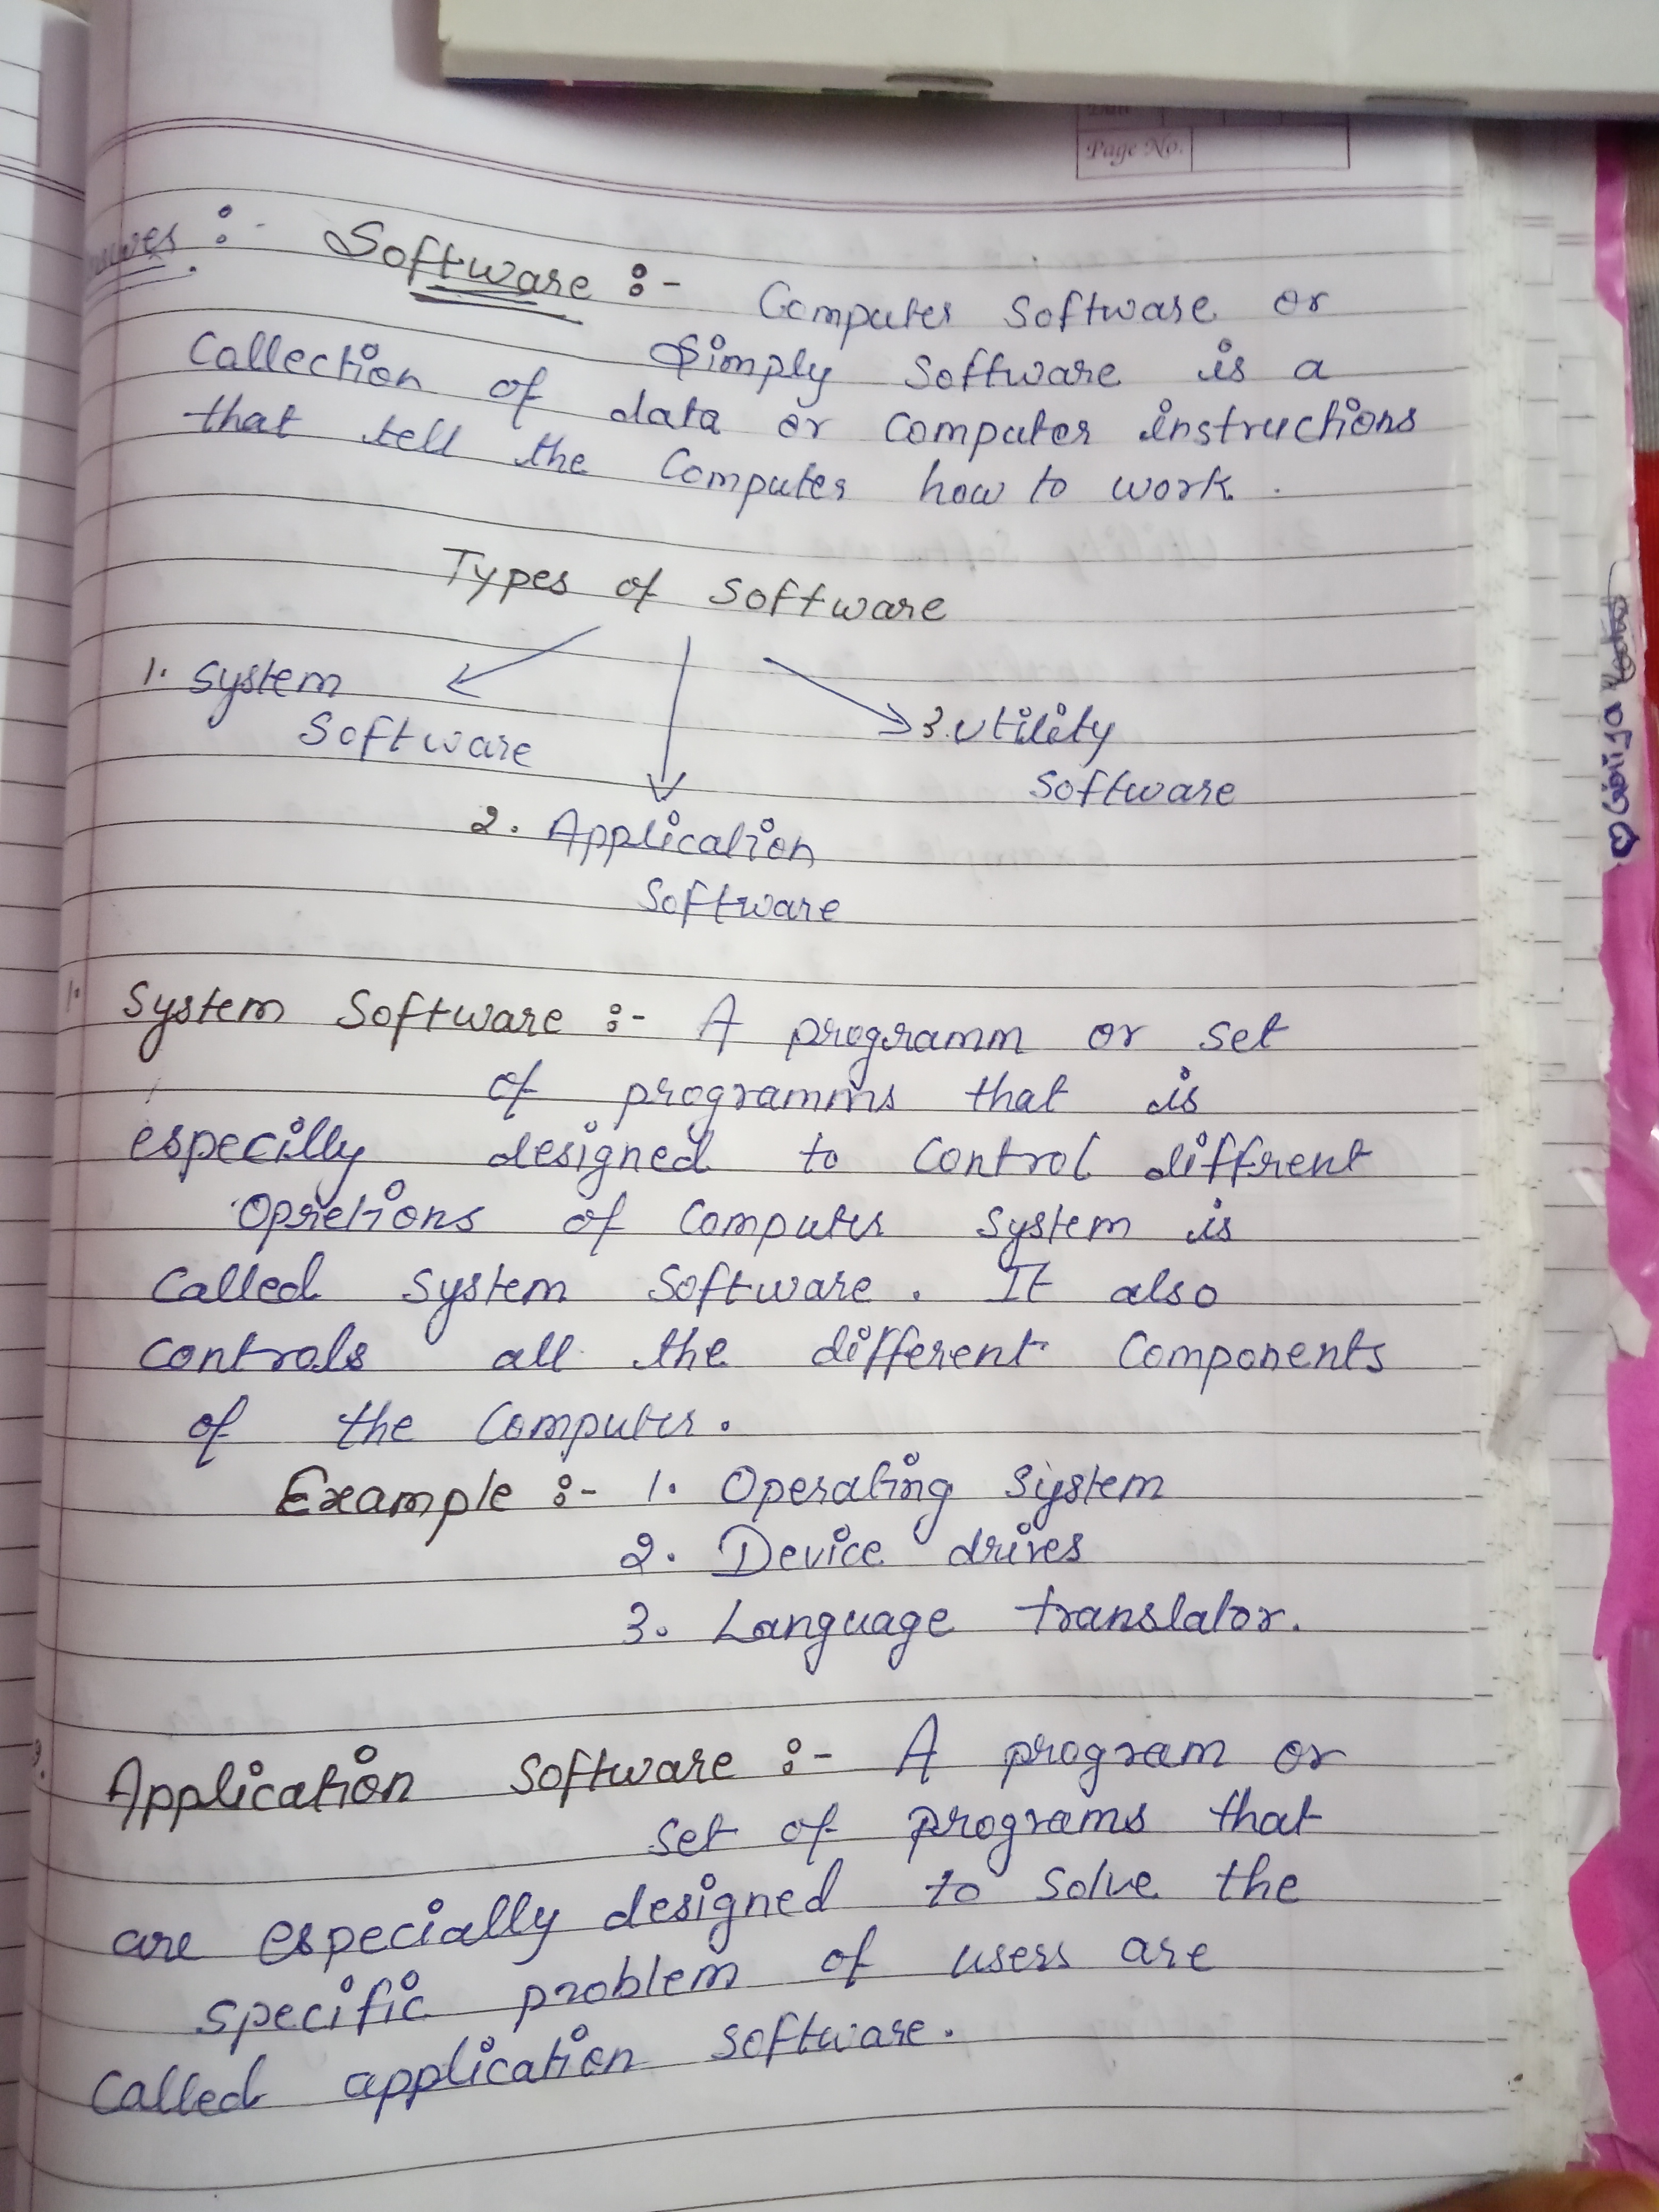 Page No.
Software :-
Computer Software or
Simply Software is a
Collection of data or Computer instructions
that tell the Computer how to work.
Types of Software
1. System
Software
3. Utility
Software
2. Application
Software
1. System Software :- A programm or set
of programms that is
especilly designed to Control diffrent
Opretions of Computer System is
Called System Software. It also
Controls all the different Components
of the Computer.
Example :- 1. Operating System
2. Device drives
3. Language translator.
Application Software :- A program or
set of programs that
are especially designed to Solve the
specific problem of users are
Called application Software.